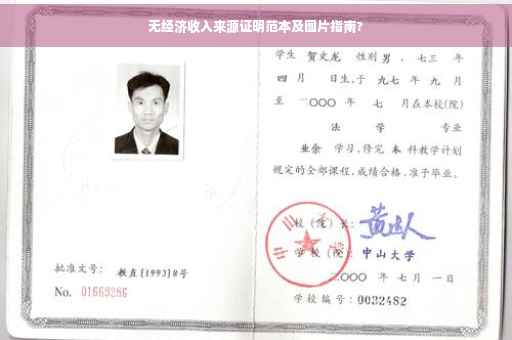 无经济收入来源证明范本及图片指南?
学生 贺文龙 性别 男 、七三 年
四 月 日生,于 九七 年 九 月
至 二〇〇〇 年 七 月在本校(院)
法 学 专业
业余 学习,修完 本 科教学计划
规定的全部课程,成绩合格,准予毕业。
校 (院) 长:
学 校 (院): 中山大学
二〇〇〇 年 七 月 一 日
批准文号: 教直(1993)8号
No. 01669286
学校编号: 0032482